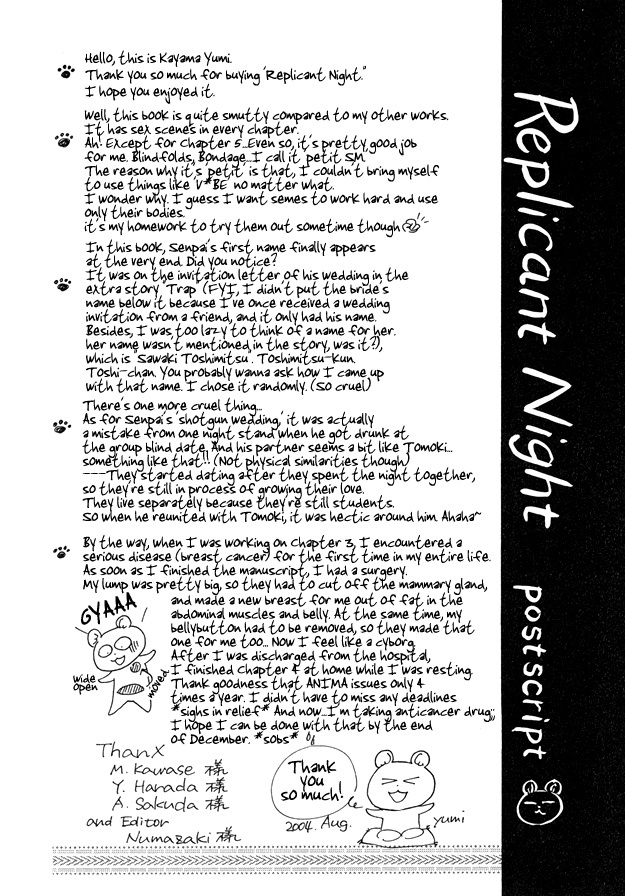 Hello, this is Kayama Yumi.
Thank you so much for buying "Replicant Night."
I hope you enjoyed it.
Well, this book is quite smutty compared to my other works.
It has sex scenes in every chapter.
Ah! Except for chapter 5...Even so, it's pretty good job
for me. Blindfolds, Bondage...I call it 'petit SM'
The reason why it's 'petit' is that, I couldn't bring myself
to use things like 'V*BE' no matter what.
I wonder why. I guess I want semes to work hard and use
only their bodies.
it's my homework to try them out sometime though
In this book, Senpai's first name finally appears
at the very end. Did you notice?
It was on the invitation letter of his wedding in the
extra story 'Trap' (FYI, I didn't put the bride's
name below it because I've once received a wedding
invitation from a friend, and it only had his name.
Besides, I was too lazy to think of a name for her.
her name wasn't mentioned in the story, was it?),
which is 'Sawaki Toshimitsu'. Toshimitsu-kun.
Toshi-chan. You probably wanna ask how I came up
with that name. I chose it randomly. (so cruel)
There's one more cruel thing...
As for Senpai's 'shotgun wedding,' it was actually
a mistake from one night stand when he got drunk at
the group blind date. And his partner seems a bit like Tomoki...
something like that!! (Not physical similarities though)
----They started dating after they spent the night together,
so they're still in process of growing their love.
They live separately because they're still students.
So when he reunited with Tomoki, it was hectic around him. Ahaha~
By the way, when I was working on Chapter 3, I encountered a
serious disease (breast cancer) for the first time in my entire life.
As soon as I finished the manuscript, I had a surgery.
My lump was pretty big, so they had to cut off the mammary gland,
and made a new breast for me out of fat in the
abdominal muscles and belly. At the same time, my
bellybutton had to be removed, so they made that
one for me too... Now I feel like a cyborg.
After I was discharged from the hospital,
I finished Chapter 4 at home while I was resting.
Thank goodness that ANIMA issues only 4
times a year. I didn't have to miss any deadlines
*sighs in relief* And now...I'm taking anticancer drug;;
I hope I can be done with that by the end
of December. *sobs*
GYAAA
wide
open
moved
ThanX
M. Kawase 様
Y. Harada 様
A. Sakuda 様
and Editor
Numazaki 様
Thank
you
so much!
2004. Aug.
yumi
Replicant Night postscript